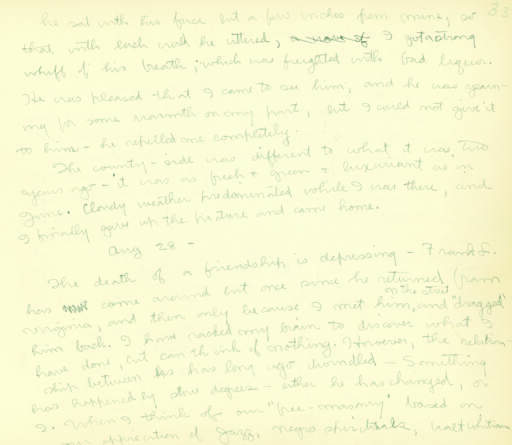 33
he sat with his face but a few inches from mine, so
that with each word he uttered, I got a strong
whiff of his breath, which was freighted with bad liquor.
He was pleased that I came to see him, and he was yearn-
ing for some warmth on my part, but I could not give it
to him - he repelled me completely.
The country-side was different to what it was two
years ago - it was as fresh & green & luxuriant as in
June. Cloudy weather predominated while I was there, and
I finally gave up the picture and came home.
Aug 28 -
The death of a friendship is depressing - Frank L.
has come around but once since he returned from
Virginia, and then only because I met him on the street, and "dragged"
him back. I have racked my brain to discover what I
have done, but can think of nothing. However, the relation-
ship between us has long ago dwindled - Something
has happened by slow degrees - either he has changed, or
I. When I think of our "free-masonry" based on
our appreciation of Jazz, negro spirituals, Walt Whitman